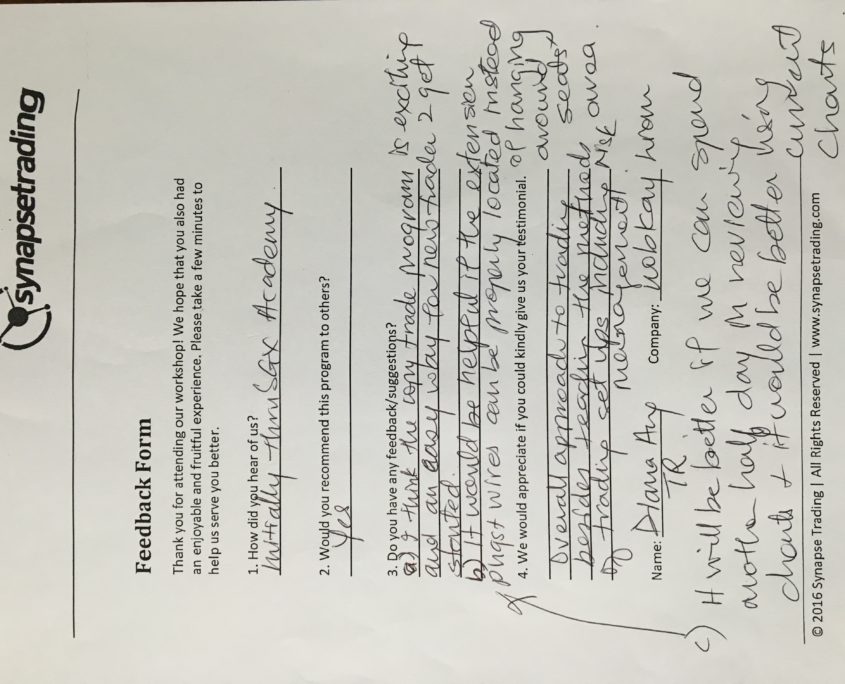 synapsetrading
Feedback Form
Thank you for attending our workshop! We hope that you also had
an enjoyable and fruitful experience. Please take a few minutes to
help us serve you better.
1. How did you hear of us?
Initially thru SGX Academy
2. Would you recommend this program to others?
Yes
3. Do you have any feedback/suggestions?
a) I think the copy trade program is exciting
and an easy way for new trader 2 get
started.
b) It would be helpful if the extension
wires can be properly located instead
of hanging
around
seats
area.
4. We would appreciate if you could kindly give us your testimonial.
Overall approach to trading
besides teaching the methods
of trading set ups including risk
management.
Name: Diana
Company:
c) It will be better if we can spend
another half day in reviewing
charts & it would be better using
current
charts
© 2016 Synapse Trading | All Rights Reserved | www.synapsetrading.com